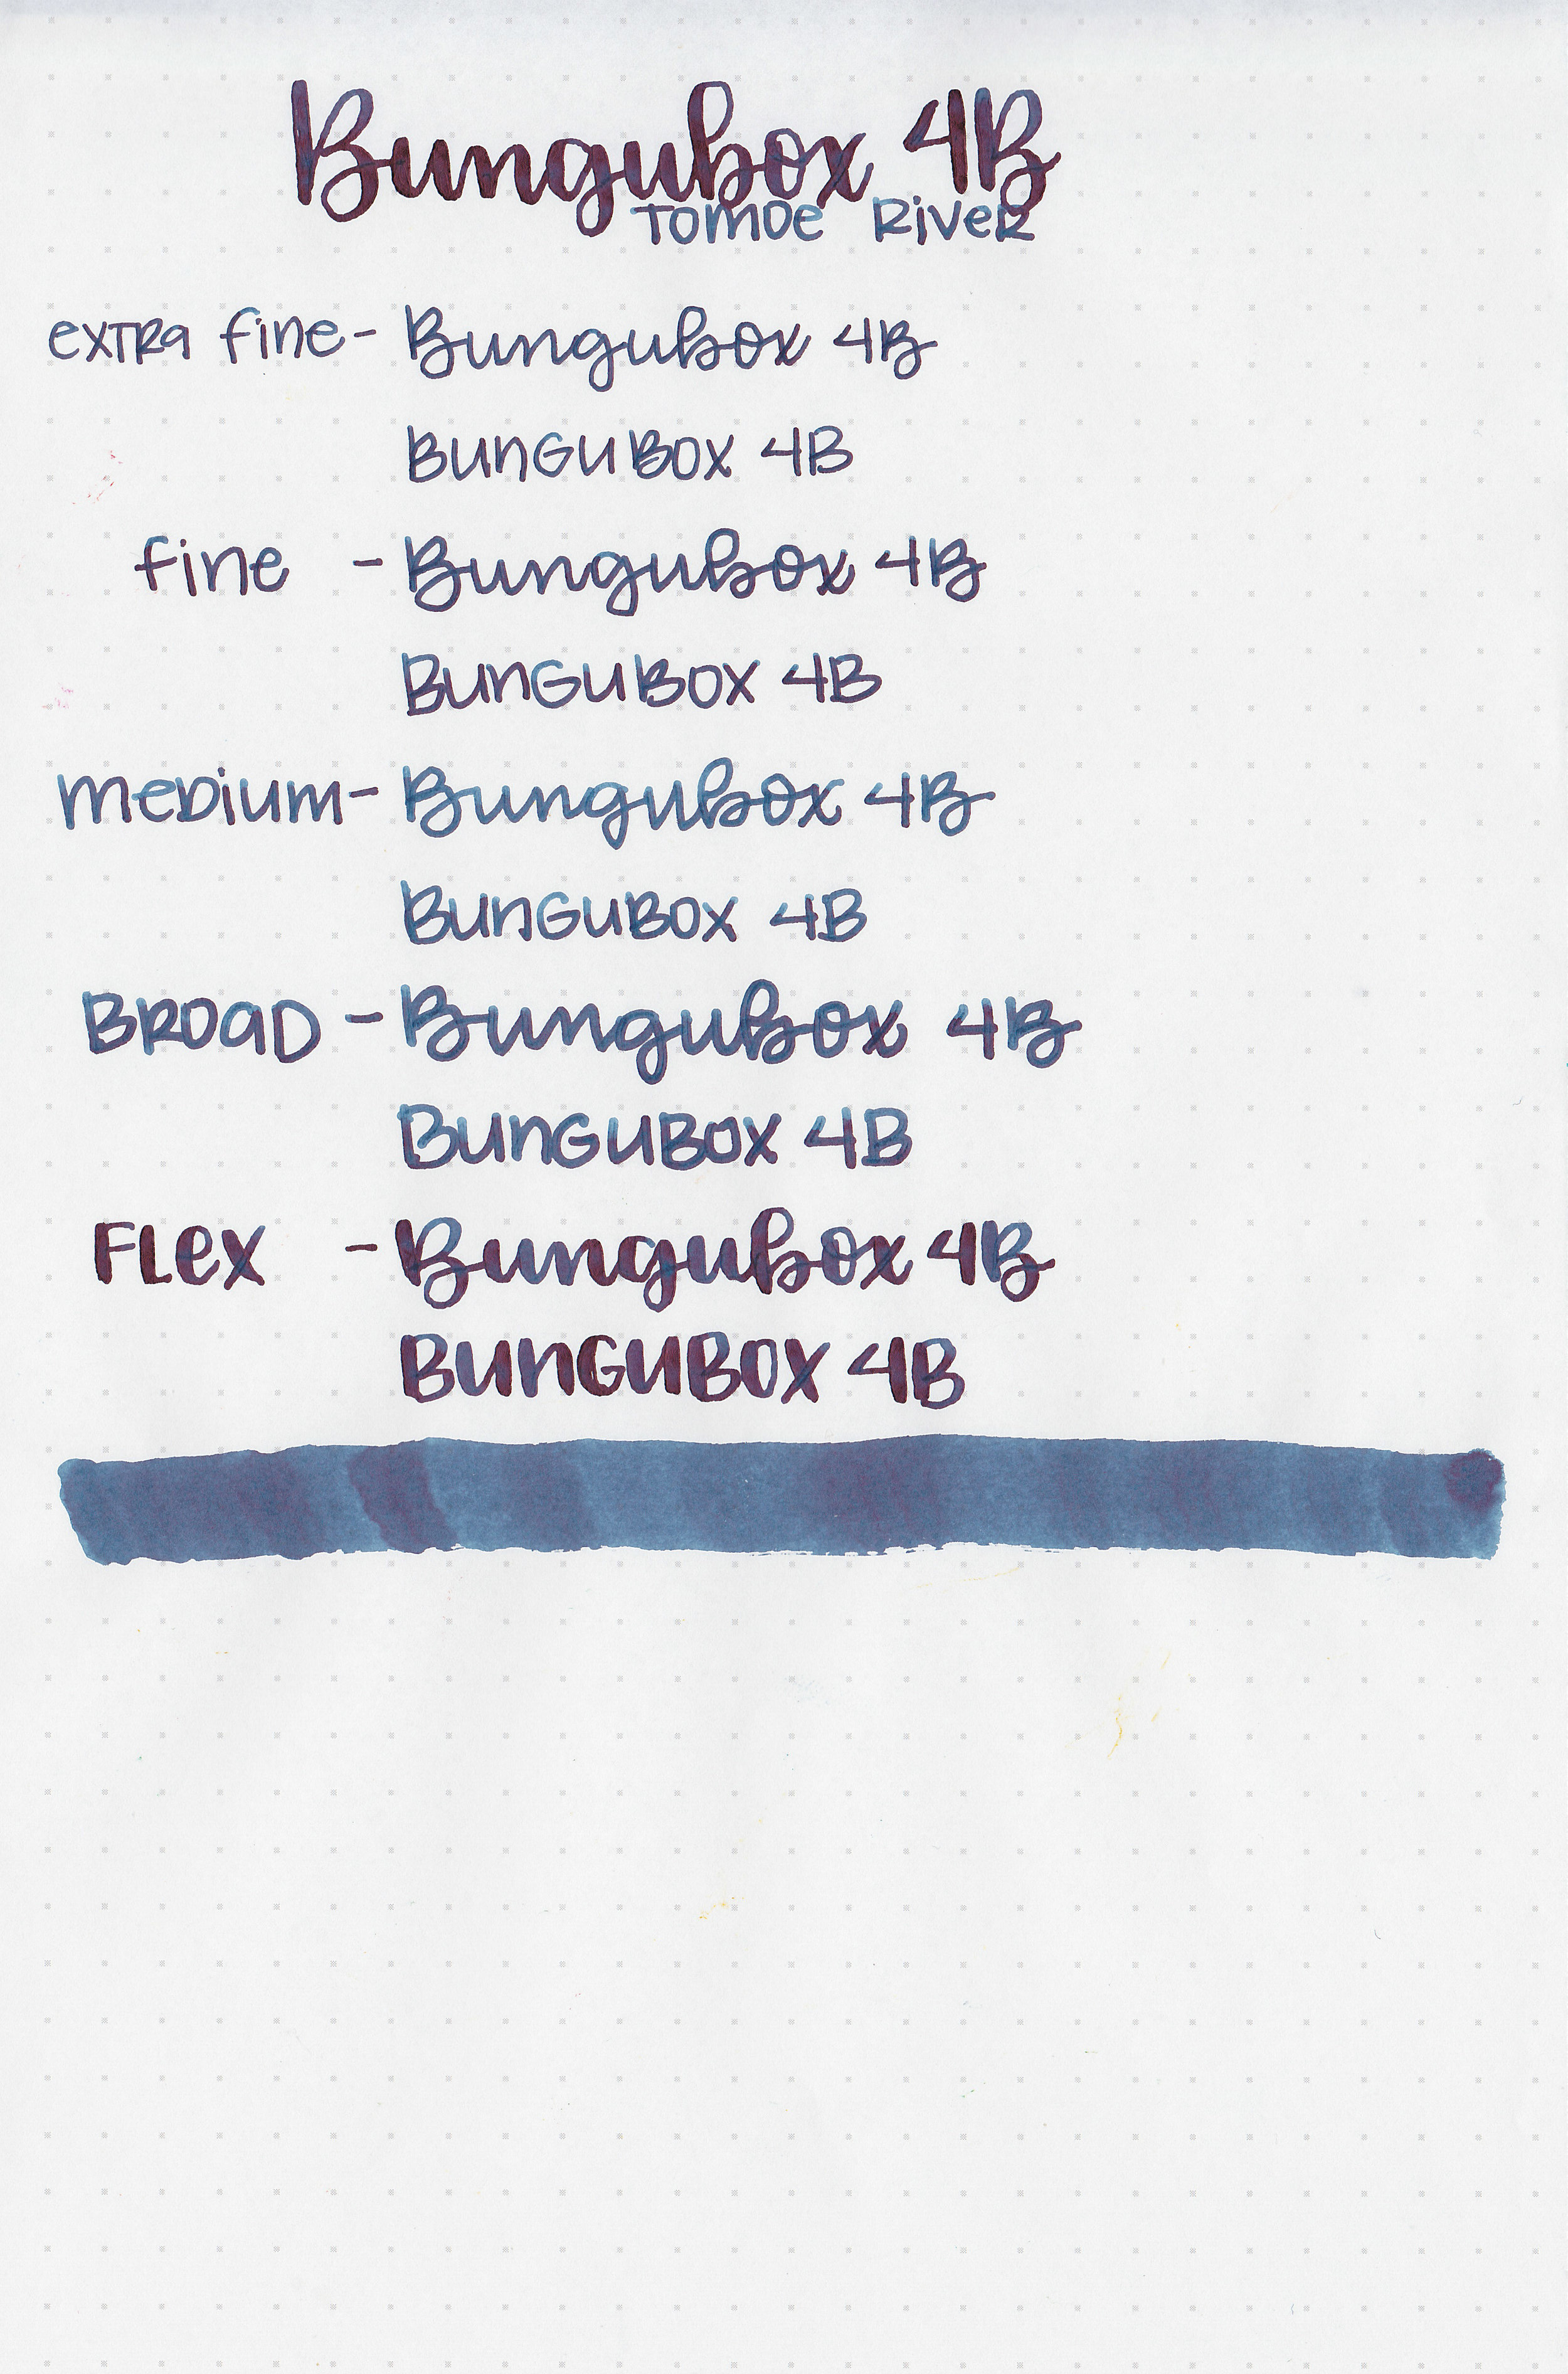 Bungubox 4B
Tomoe River
extra fine - Bungubox 4B
BunGuBox 4B
fine - Bungubox 4B
BunGuBox 4B
meDium - Bungubox 4B
BunGuBox 4B
BROaD - Bungubox 4B
BunGuBox 4B
FLex - Bungubox 4B
BunGuBox 4B